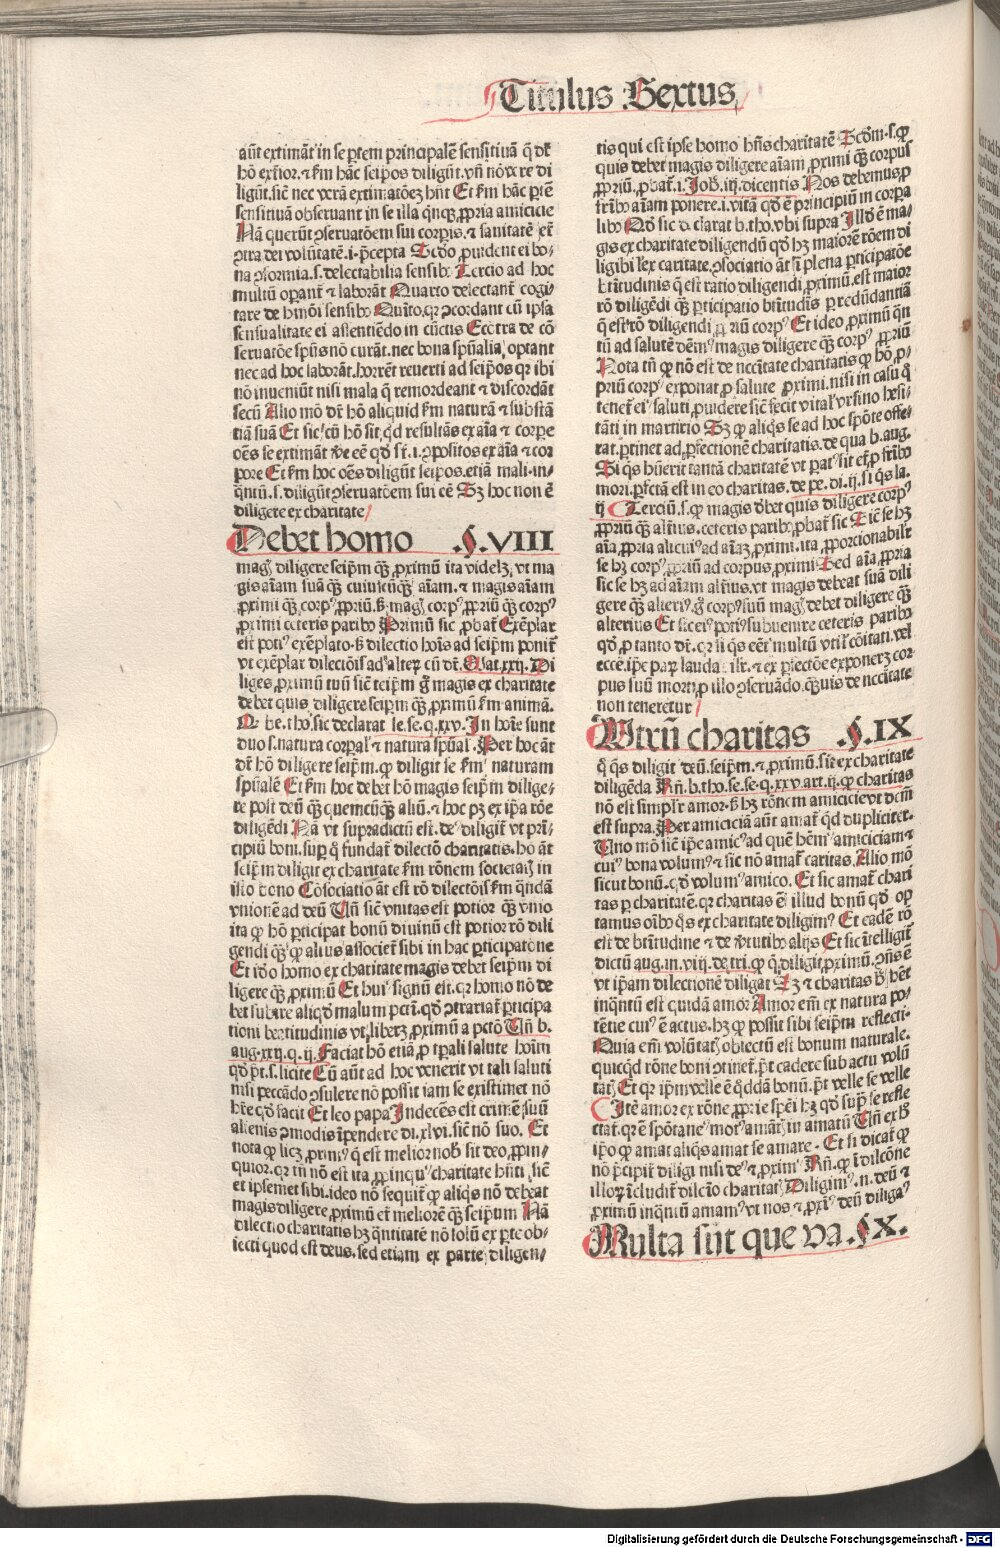 Titulus Sextus
aūt extimāt in se ꝑtem principalē sensitiuā q̄ dr̄
hō exterior. ⁊ ẜm hāc seipos diligūt. vn̄ nō ve re di
ligūt. sic̄ nec verā extimatōez hn̄t Et ẜm hāc ꝑtē
sensitiuā obseruant in se illa qūqꝫ ꝓpria amicicie
Nā querūt ꝯseruatōem sui corpis. ⁊ sanitatē etꝫ
ꝯtra dei volūtatē. i. p̄cepta Scd̄o ꝓuident ei bo⸗
na ꝯformia. s. delectabilia sensibꝰ Tercio ad hoc
multū operant̄ ⁊ laborāt Quarto delectant̄ cogi
tare de hmōi sensibꝰ Quīto. qꝛ ꝯcordant cū ipsa
sensualitate ei assentiēdo in cūctis Ecōtra de cō
seruatōe spūs nō curāt. nec bona spūalia optant
nec ad hoc laborāt. horrēt reuerti ad seipos qꝛ ibi
nō inueniūt nisi mala q̄ remordeant ⁊ discordāt
secū Alio mō dr̄ hō aliquid ẜm naturā ⁊ substā
tiā suā Et sicꝰ cū hō sit qd resultās ex aīa ⁊ corꝑe
oēs se extimāt vere eē qd̄ sūt. i. ꝯpositos ex aīa ⁊ cor
pore Et ẜm hoc oēs diligūt seipos. etiā mali. in⸗
q̄ntū. s. diligūt ꝯseruatōem sui eē Sꝫ hoc non ē
diligere ex charitate
Debet homo .§.VIII
magꝭ diligere seip̄m q̄ꝫ ꝓximū ita videlꝫ. vt ma
gis aīam suā q̄ꝫ cuiuscūqꝫ aīam. ⁊ magis aīam
ꝓximi q̄ꝫ corpꝰ ꝓpriū. ẜꝫ magꝭ corpꝰ ꝓpriū q̄ꝫ corpꝰ
ꝓximi ceteris paribꝰ Primū sic ꝓbat̄ Exēplar
est potiꝰ exēplato. ẜꝫ dilectio hoīs ad seip̄m ponit̄
vt exēplar dilectōis ad alteꝝ cū dr̄. Mat. xxij. Di
liges ꝓximū tuū sic̄ teip̄m g̊ magis ex charitate
debet quis diligere seip̄m q̄ꝫ ꝓximū ẜm animā.
Qd be. tho. sic declarat se. se. q. xxv. In hoīe sunt
duo. s. natura corpal̓ ⁊ natura spūal̓. Per hoc āt
dr̄ hō diligere seip̄m. ꝙ diligit se ẜm naturam
spūalē Et ẜm hoc debet hō magis seip̄m dilige⸗
re post deū q̄ꝫ quemcūqꝫ aliū. ⁊ hoc pꝫ ex ip̄a rōe
diligēdi Nā vt supradictū est. deꝰ diligit̄ vt prī⸗
cipiū boni. suꝑ q̄ fundat̄ dilectō charitatis. hō āt
seip̄m diligit ex charitate ẜm rōnem societatꝭ in
isto bono Cōsociatio āt est rō dilectōis ẜm q̄ndā
vnionē ad deū Vn̄ sic̄ vnitas est potior q̄ꝫ vnio
ita ꝙ hō ꝑticipat bonū diuinū est potior rō dili
gendi q̄ꝫ ꝙ alius associet̄ sibi in hac ꝑticipatiōne
Et iō homo ex charitate magis debet seip̄m di
ligere q̄ꝫ ꝓximū Et huiꝰ signū est. qꝛ homo nō de
bet subire aliqd̄ malum pctī. qd̄ ꝯtrariat̄ ꝑticipa
tioni beatitudinis vt liberꝫ ꝓximū a pctō Vn̄ b.
aug. xxij. q. ij. Faciat hō etiā ꝓ tꝑali salute hoīm
qd̄ pōt. s. licite Cū aūt ad hoc venerit vt tali saluti
nisi peccādo ꝯsulere nō possit iam se existimet nō
hr̄e qd̄ faciat Et leo papa Indecēs est crimē suū
alienis ꝯmodis īpendere di. xlvi. sic̄ nō suo. Et
nota ꝙ licꝫ ꝓximꝰ q̄ est melior nobꝭ sit deo ꝓpin⸗
quior. qꝛ tn̄ nō est ita ꝓpinquꝰ charitatē hn̄ti. sic̄
et ipsemet sibi. ideo nō sequit̄ ꝙ aliqs nō debeat
magis diligere ꝓximū et meliorē q̄ꝫ seip̄um Nā
dilectio charitatis hꝫ q̄ntitatē nō solū ex ꝑte ob⸗
iecti quod est deus. sed etiam ex parte diligen⸗
tis qui est ipse homo hn̄s charitatē Scd̄m. s. ꝙ
quis debet magis diligere aīam ꝓximi q̄ꝫ corpus
ꝓpriū. ꝓbat̄. i. Joh̄. iij. dicentis Nos debemus ꝓ
fr̄ibꝰ aīam ponere. i. vitā qd̄ ē principiū in corpa
libꝰ Qd̄ sic declarat b. tho. vbi supra Illd̄ ē ma⸗
gis ex charitate diligendū qd̄ hꝫ maiorē rōem di
ligibilꝭ ex caritate. ꝯsociatio āt ī plena ꝑticipatōe
btītudinis q̄ est ratio diligendi ꝓximū. est maior
rō diligēdi q̄ꝫ ꝑticipatio btītudīs per redūdantiā
q̄ est rō diligendi ꝓpriū corpꝰ Et ideo ꝓximū q̄n
tū ad salutē dēmꝰ magis diligere q̄ꝫ corpꝰ ꝓpriū
Nota tn̄ ꝙ nō est de nccītate charitatis ꝙ hō ꝓ⸗
priū corpꝰ exponat ꝓ salute ꝓximi. nisi in casu q̄
tenet̄ eiꝰ saluti ꝓuidere sic̄ fecit vitalꝭ vrsino hesi⸗
tāti in martirio Sꝫ ꝙ aliqs se ad hoc spōte offe⸗
rat. ꝑtinet ad ꝑfectionē charitatis. de qua b. aug.
Si qs hūerit tantā charitatē vt patꝰ sit etꝫ ꝓ fr̄ibꝰ
mori. ꝑfcta est in eo charitas. de pe. di. ij. si qs la.
ij Terciū. s. ꝙ magis dꝫbet quis diligere corpꝰ
ꝓpriū q̄ꝫ alīus. ceteris paribꝰ ꝓbat̄ sic Sic̄ se hꝫ
aīa ꝓpria alicuiꝰ ad aīaꝫ ꝓximi. ita ꝓporcionabilr̄
se hꝫ corpꝰ ꝓpriū ad corpus ꝓximi Sed aīa ꝓpria
sic se hꝫ ad aīam alīus. vt magis debeat suā dili
gere q̄ꝫ alteriꝰ. g̊ corpꝰ suū magꝭ debet diligere q̄ꝫ
alterius Et sic eiꝰ potiꝰ subuenire ceteris paribꝰ
qd̄ ꝓ tanto dr̄. qꝛ si qs eēt multū vtil̓ cōitati. vel
ecce īperator laudabilr̄. ⁊ ex ꝑfectōe exponerꝫ cor
pus suū morti ꝓ illo ꝯseruādo. q̄uis de nccītate
non teneretur
Vtrū charitas .§.IX
q̄ qs diligit deū. seip̄m. ⁊ ꝓximū. sit ex charitate
diligēda Rn̄. b. tho. se. se. q. xxv. art. ij. ꝙ charitas
nō est simplr̄ amor. ẜꝫ hꝫ rōnem amicicie vt dcm̄
est supra. Per amiciciā aūt amat̄ qd duplicit̓.
Uno mō sic̄ ip̄e amicꝰ ad quē hēmꝰ amiciciam ⁊
cuiꝰ bona volumꝰ ⁊ sic nō amat̄ caritas. Alio mō
sicut bonū. qd̄ volumꝰ amico. Et sic amat̄ chari
tas ꝑ charitatē. qꝛ charitas ē illud bonū qd̄ op
tamus oībꝰ qs ex charitate diligimꝰ Et eadē rō
est de btītudine ⁊ de v̓tutibꝰ alijs Et sic īelligit̄
dictū aug. in. viij. de tri. ꝙ q̄ diligit ꝓximū. ꝯn̄s ē
vt ip̄am dilectionē diligat Sꝫ ⁊ charitas v̓ hēt
inq̄ntū est quidā amor Amor em̄ ex natura po⸗
tētie cuiꝰ ē actus. hꝫ ꝙ possit sibi seip̄m reflecti.
Quia em̄ volūtatꝭ obiectū est bonum naturale.
quicqd rōne boni ꝯtinet̄. pōt cadere sub actu volū
tatꝭ Et qꝛ ip̄m velle ē qddā bonū. pōt velle se velle
Itē amor ex rōne ꝓprie spēi hꝫ qd̄ supꝰ se refle
ctat̄. qꝛ ē spōtaneꝰ motꝰ amātꝭ in amatū Vn̄ ex hꝫ
ip̄o ꝙ amat aliqs amat se amare. Et si dicat̄ ꝙ
nō p̄cipit̄ diligi nisi deꝰ ⁊ ꝓximꝰ Rn̄. ꝙ ī dilcōne
illoꝝ īcludit̄ dilcīo charitatꝭ Diligimꝰ. n. deū ⁊
ꝓximū inq̄ntū amamꝰ vt nos ⁊ ꝓxiꝰ deū diligaꝰ
Multa sūt que va. §X.
Digitalisierung gefördert durch die Deutsche Forschungsgemeinschaft - DFG